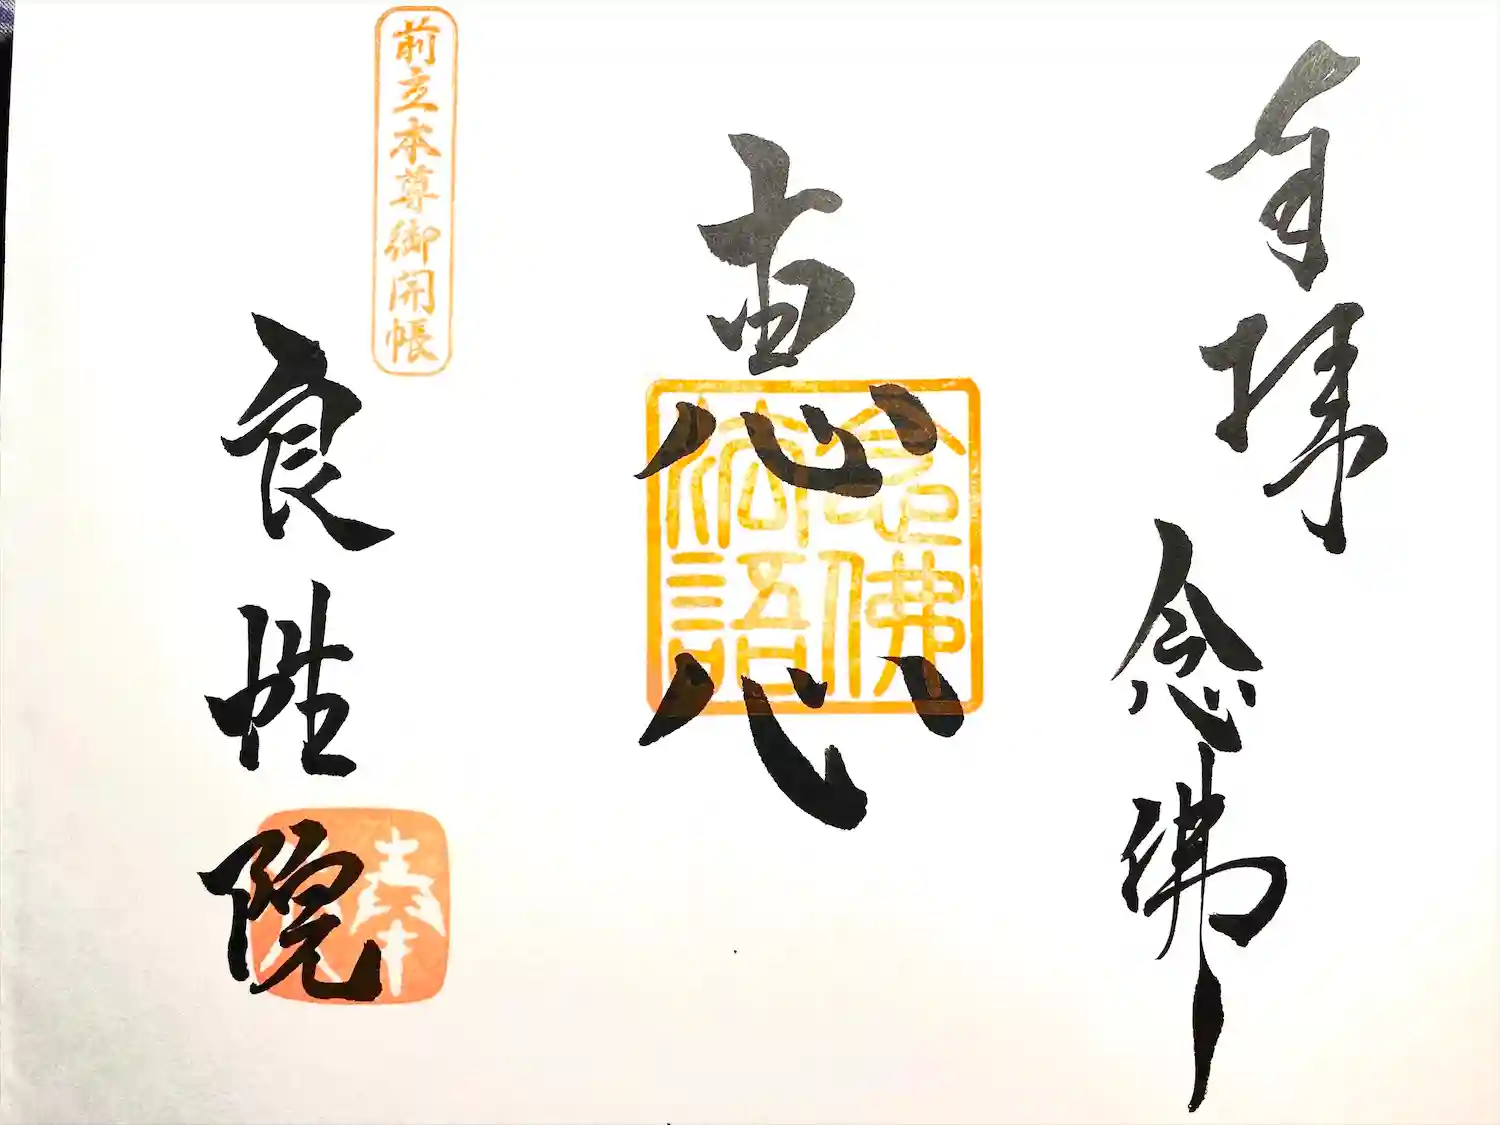 奉拝
念佛
恵心
念佛
法語
前立本尊御開帳
良性院